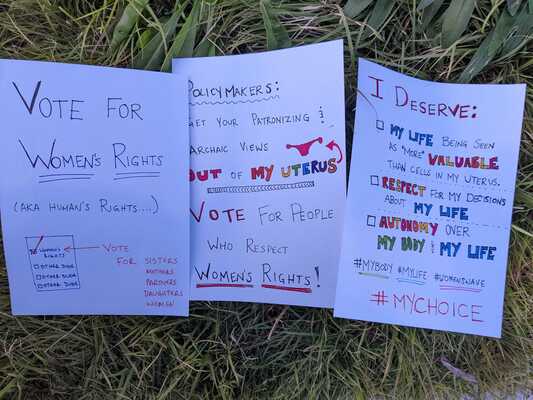 VOTE FOR
WOMEN'S RIGHTS
(AKA HUMAN'S RIGHTS....)
WOMEN'S
RIGHTS
OTHER DUDE
OTHER DUDE
OTHER DUDE
VOTE
FOR SISTERS
MOTHERS
PARTNERS
DAUGHTERS
WOMEN
POLICYMAKERS:
GET YOUR PATRONIZING &
ARCHAIC VIEWS
OUT OF MY UTERUS
VOTE FOR PEOPLE
WHO RESPECT
WOMEN'S RIGHTS!
I DESERVE:
MY LIFE BEING SEEN
AS "MORE" VALUABLE
THAN CELLS IN MY UTERUS.
RESPECT FOR MY DECISIONS
ABOUT MY LIFE
AUTONOMY OVER
MY BODY & MY LIFE
#MYBODY #MYLIFE #WOMENSWAVE
#MYCHOICE